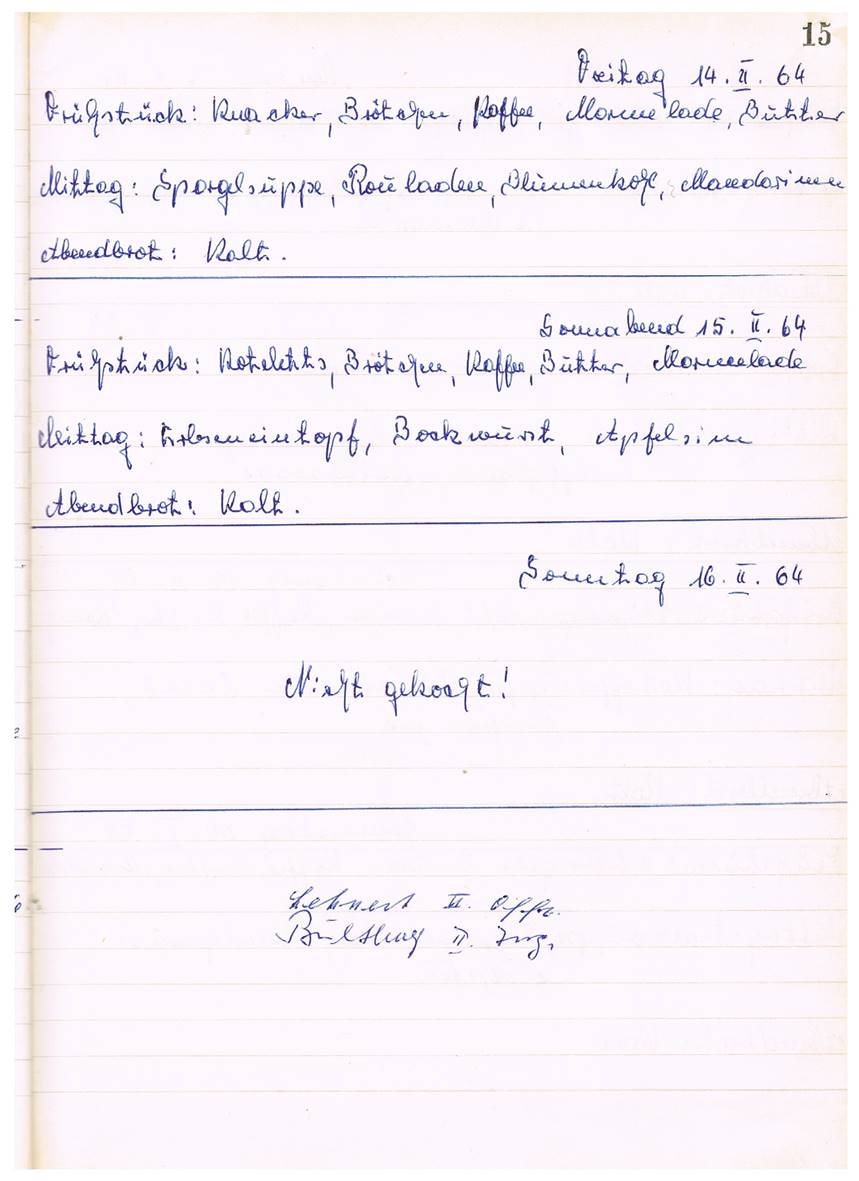 15
Freitag 14. II. 64
Frühstück: Knacker, Brötchen, Kaffee, Marmelade, Butter
Mittag: Spargelsuppe, Rouladen, Blumenkohl, Mandarinen
Abendbrot: Kalt.
Sonnabend 15. II. 64
Frühstück: Koteletts, Brötchen, Kaffee, Butter, Marmelade
Mittag: Erbseneintopf, Bockwurst, Apfelsine
Abendbrot: Kalt.
Sonntag 16. II. 64
Nicht gekocht!
Lehnert II. Offz.
II. Ing.